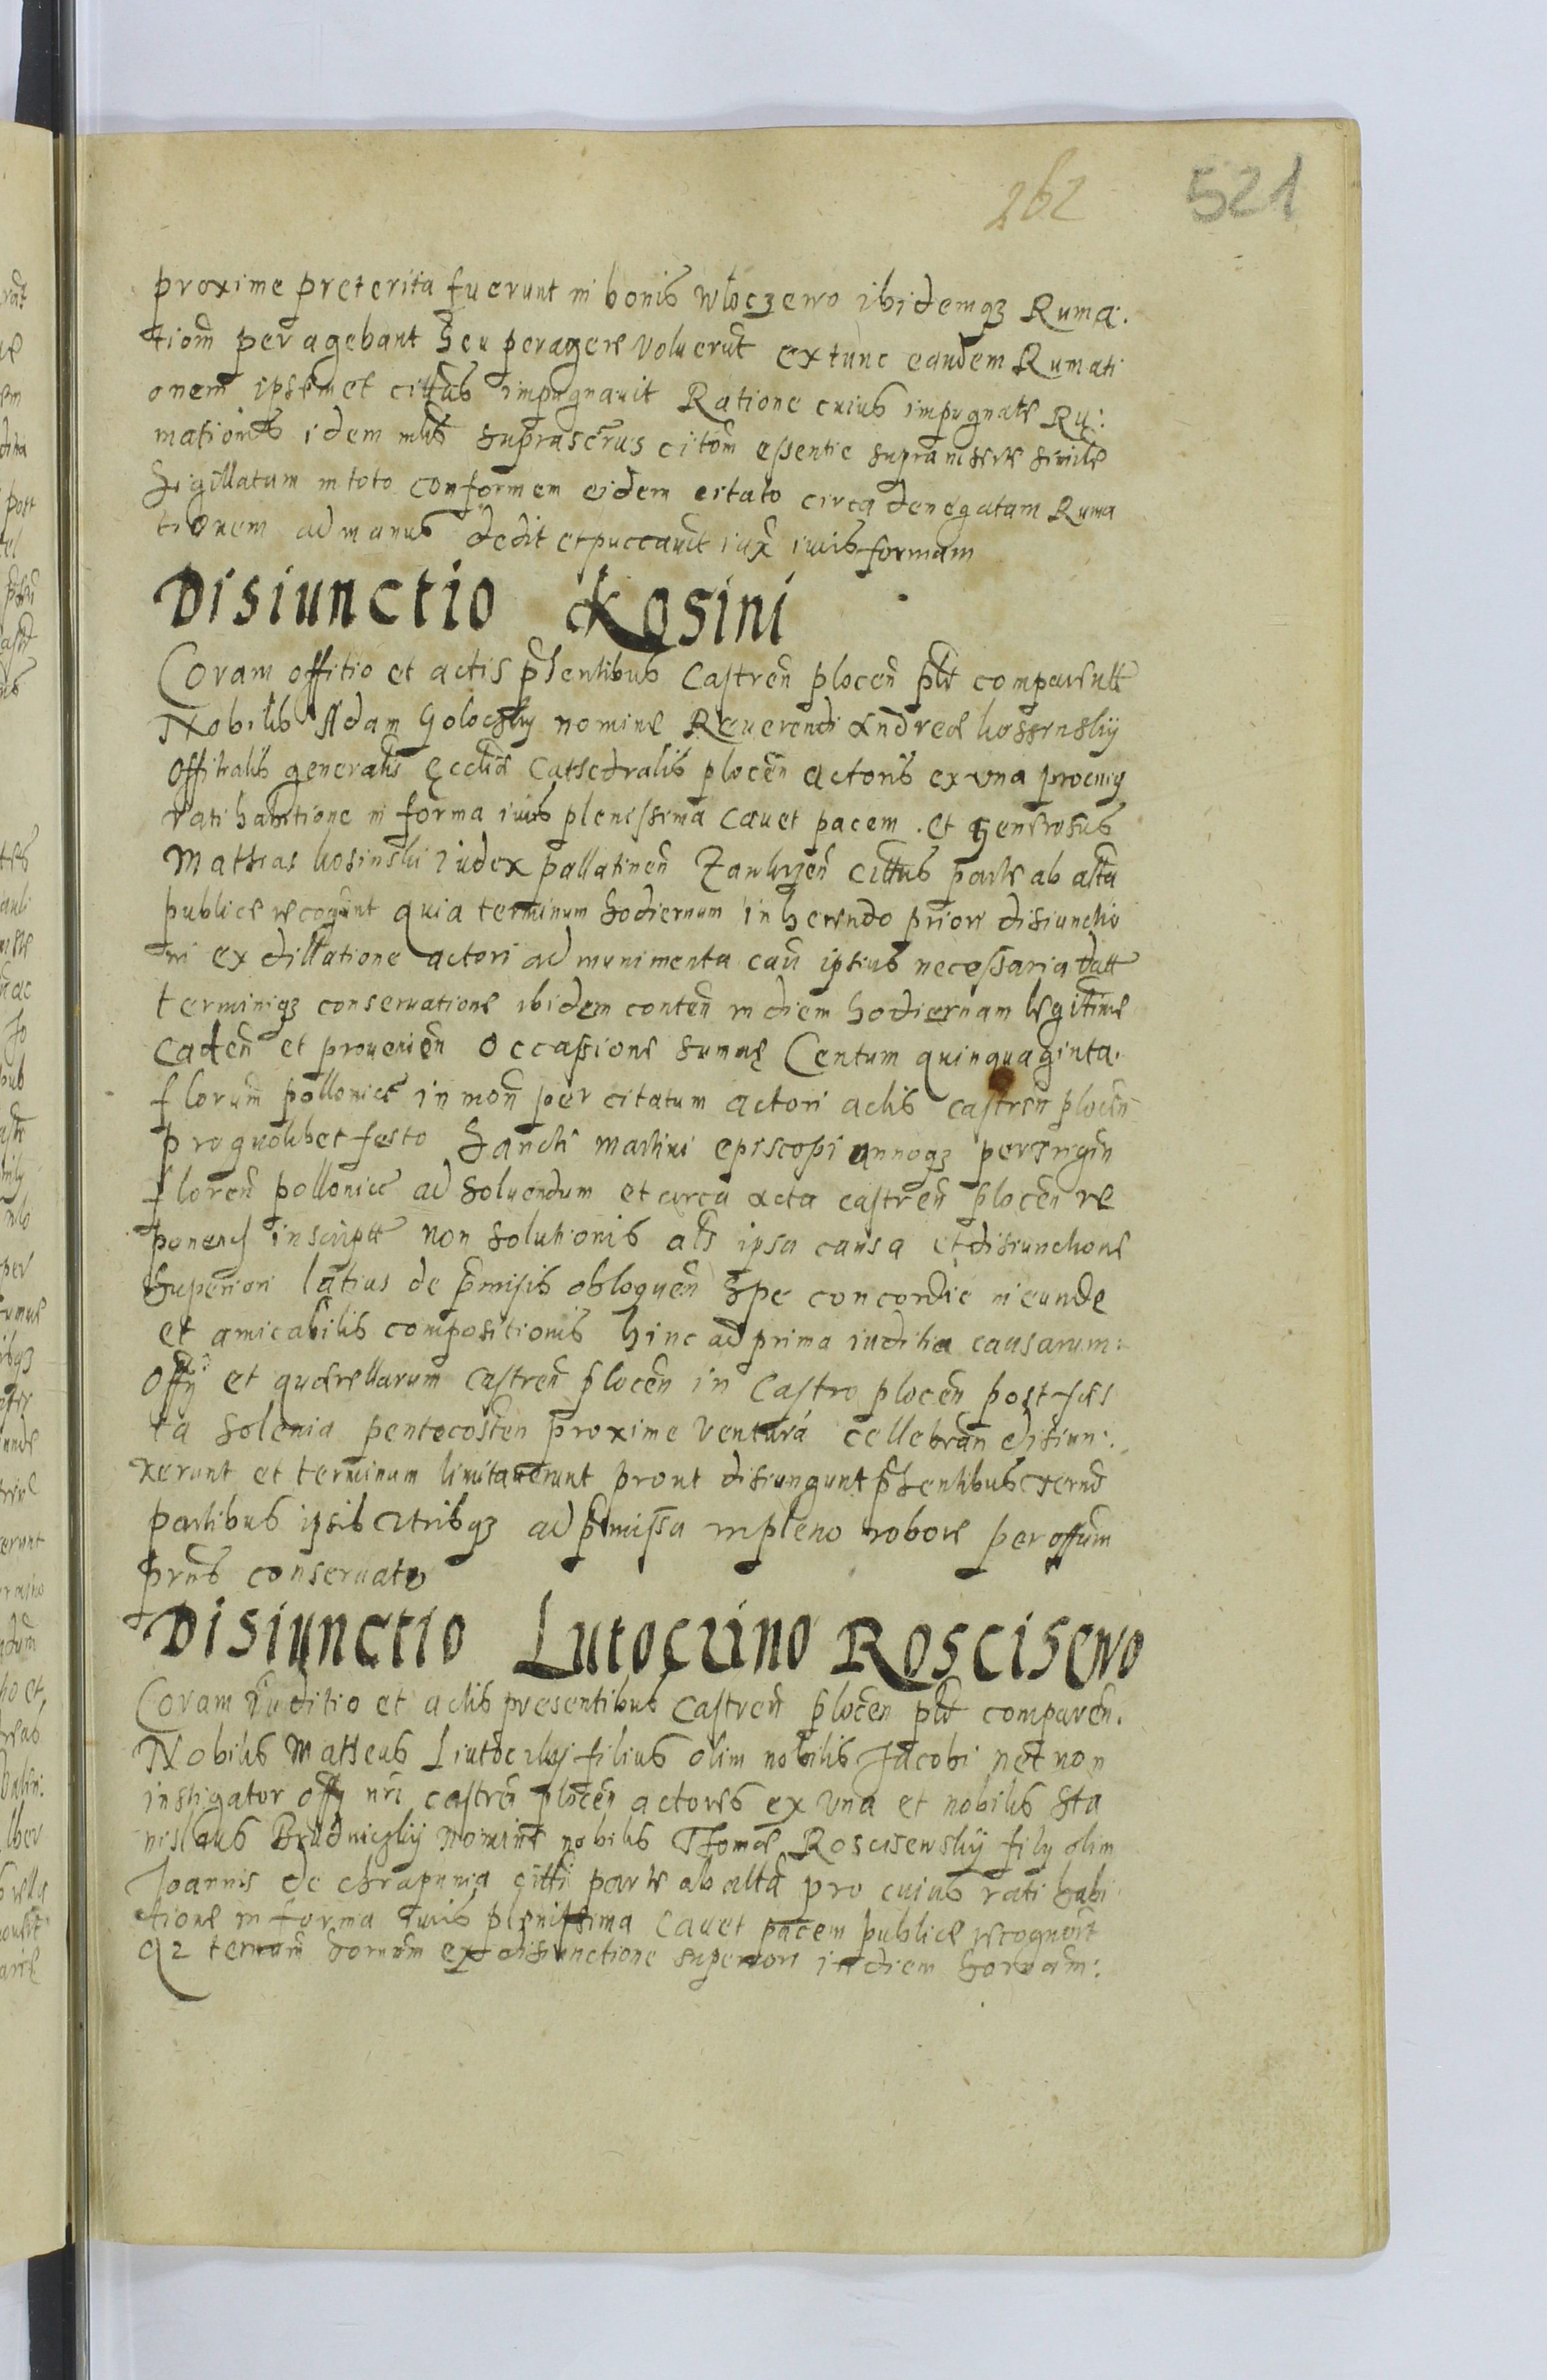 262 521
proxime preterita fuerunt in bonis Wloczewo ibidemqz Ruma:
tiom̃ peragebant seu peragere voluerũt extunc eandem Rumati
onem ipsemet cittus impugnavit Ratione cuius impugnate Ru:
mationis idem mĩlis suprascrus citom̃ essentie suprainserte simile
sigillatum in toto conformem eidem citato circa denegatam Ruma
tionem ad manus dedit et iux̃ iuris formam
Disiunctio Kosini
Coram offitio et actis p̃sentibus Castren̄ plocen̄ p̃lr comparentt
Nobilis Adam Goloczky nomine Reverendi Andreae kossinskÿ
Offitialis generalis Ecclĩæ Cathedralis plocen̄ actoris ex una pro cuiꝯ
rati habitione in forma iuris plenissima cavet pacem. et generosus
Mathias kosinski iudex pallatinen̄ Zawkrzen̄ cittus parte ab altã
publice recogũnt quia terminum hodiernum inherendo priori disiunctio
ni ex dillatione actori ad munimenta caũ ipsius necessaria datt
terminiqz conservatione ibidem conten̄ in diem hodiernam legitime
caden̄ et provenien̄ Occasione summe Centum quinquaginta.
florum̃ pollonice in mon̄ per citatum actori actis castren̄ plocen̄
pro quolibet festo Sancti Martini episcopi annoqz
floren̄ pollonice ad solvendum et circa acta castren̄ plocen̄ re
ponend inscriptt non solutionis als̃ ipsa causa et disiunctione
superiori latius de p̃missis obloquen̄ spe concordie ineunde
et amicabilis compositionis hinc ad prima iuditia causarum:
Offÿ et querellarum castren̄ plocen̄ in Castro plocen̄ post fes
ta solenia pentecosten proxime ventura cellebran̄ disiun:
xerunt et terminum limitaverunt prout disiungunt p̃sentibus
partibus ipsis utrisqz ad p̃missa in pleno robore per offum̃
prñs conservato
Disiunctio Lutocino Roscisewo
Coram Iuditio et actis presentibus Castren̄ plocen̄ p̃lr comparen̄.
Nobilis Mattheus Liutoczky filius olim nobilis Jacobi necnon
instigator offÿ nr̃i castren̄ plocen̄ actores ex una et nobilis Sta
nislaus Brudniczkÿ nomine nobilis Thomæ Roscisewskÿ filÿ olim
Joannis de chrapunia citti parte ab altã pro cuius rati habi
tione in forma iuris plenissima cavet pacem publice recognoũt
q2 ternum̃ hornum̃ ex disiunctione superiori in diem hornam̃: